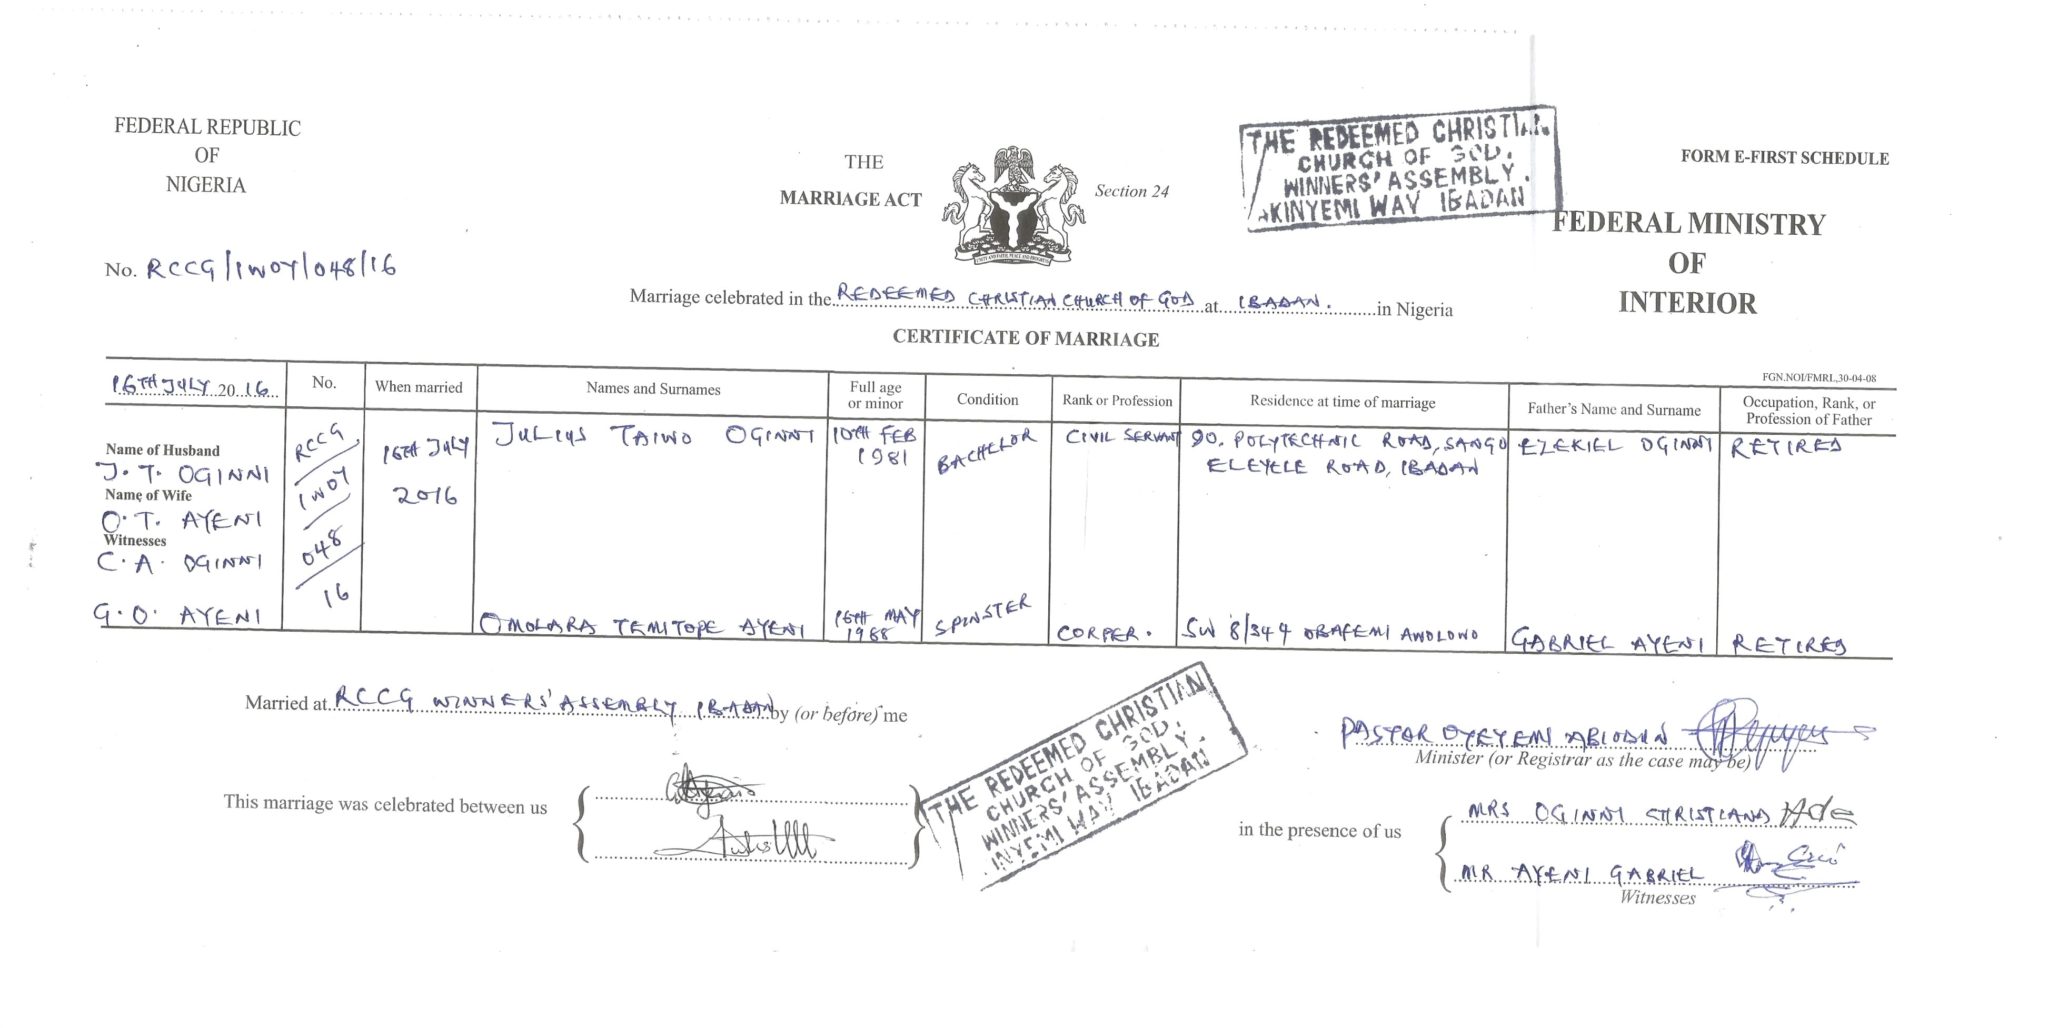 FEDERAL REPUBLIC
OF
NIGERIA
No. RCCG/IWOY/048/16
THE
MARRIAGE ACT
Section 24
THE REDEEMED CHRISTIAN
CHURCH OF GOD.
WINNERS' ASSEMBLY.
AKINYEMI WAY IBADAN
FORM E-FIRST SCHEDULE
FEDERAL MINISTRY
OF
INTERIOR
Marriage celebrated in the REDEEMED CHRISTIAN CHURCH OF GOD at IBADAN. in Nigeria
CERTIFICATE OF MARRIAGE
FGN.NOI/FMRI.,30-04-08
16TH JULY 2016
No.
When married
Names and Surnames
Full age
or minor
Condition
Rank or Profession
Residence at time of marriage
Father's Name and Surname
Occupation, Rank, or
Profession of Father
Name of Husband
J. T. OGINNI
Name of Wife
O. T. AYENI
Witnesses
C. A. OGINNI
G. O. AYENI
RCCG
IWOY
048
16
16TH JULY
2016
JULIUS TAIWO OGINNI
10TH FEB
1981
BACHELOR
CIVIL SERVANT
90, POLYTECHNIC ROAD, SANGO
ELEYELE ROAD, IBADAN
EZEKIEL OGINNI
RETIRED
OMOLARA TEMITOPE AYENI
16TH MAY
1988
SPINSTER
CORPER.
SW 8/344 OBAFEMI AWOLOWO
GABRIEL AYENI
RETIRED
Married at RCCG WINNERS' ASSEMBLY IBADAN by (or before) me
PASTOR OYEYEMI ABIODUN
Minister (or Registrar as the case may be)
This marriage was celebrated between us
THE REDEEMED CHRISTIAN
CHURCH OF GOD.
WINNERS' ASSEMBLY.
INYEMI WAY IBADAN
in the presence of us
MRS OGINNI CHRISTIANA
MR AYENI GABRIEL
Witnesses